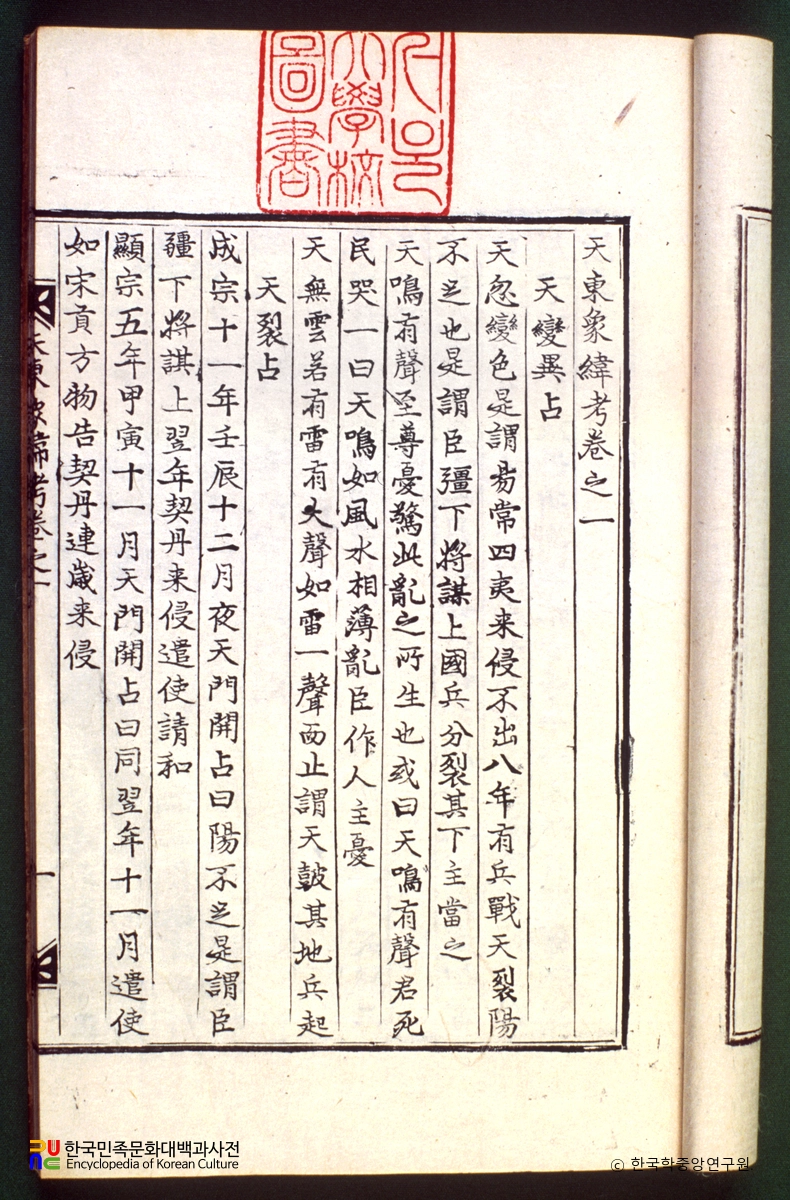 서울
大學校
圖書
天東象緯考卷之一
天變異占
天忽變色是謂易常四夷来侵不出八年有兵戰天裂陽
不足也是謂臣彊下將謀上國兵分裂其下主當之
天鳴有聲至尊憂驚此亂之所生也或曰天鳴有聲君死
民哭一曰天鳴如風水相薄亂臣作人主憂
天無雲若有雷有大聲如雷一聲而止謂天鼓其地兵起
天裂占
成宗十一年壬辰十二月夜天門開占曰陽不足是謂臣
疆下將諆上翌年契丹来侵遣使請和
顯宗五年甲寅十一月天門開占曰同翌年十一月遣使
如宋貢方物告契丹連歲来侵
天東象緯考卷之一
一
한국민족문화대백과사전
Encyclopedia of Korean Culture
© 한국학중앙연구원